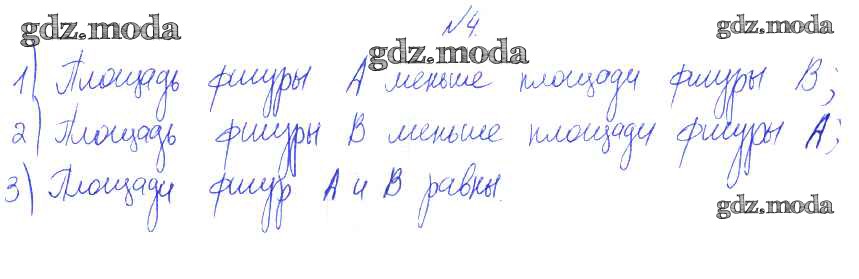 №4.
gdz.moda
gdz.moda
gdz.moda
1) Площадь фигуры А меньше площади фигуры В;
2) Площадь фигуры В меньше площади фигуры А;
3) Площади фигур А и В равны.
gdz.moda